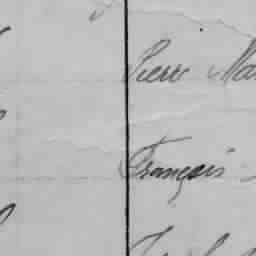 Pierre Ma
François